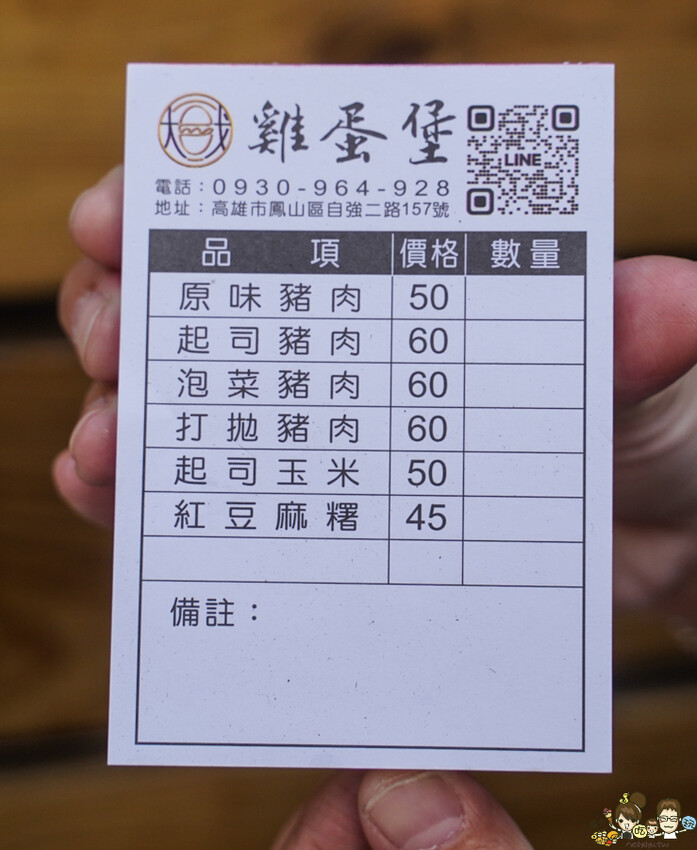 大成 雞蛋堡
LINE
電話：0930-964-928
地址：高雄市鳳山區自強二路157號
品項 價格 數量
原味豬肉 50
起司豬肉 60
泡菜豬肉 60
打拋豬肉 60
起司玉米 50
紅豆麻糬 45
備註：